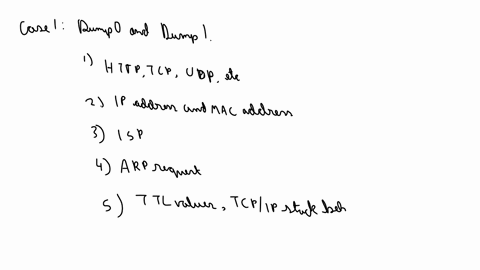 Case 1: Dump0 and Dump1.
1) HTTP, TCP, UDP, etc
2) IP address and MAC address
3) ISP
4) ARP request
5) TTL values, TCP/IP stack beh